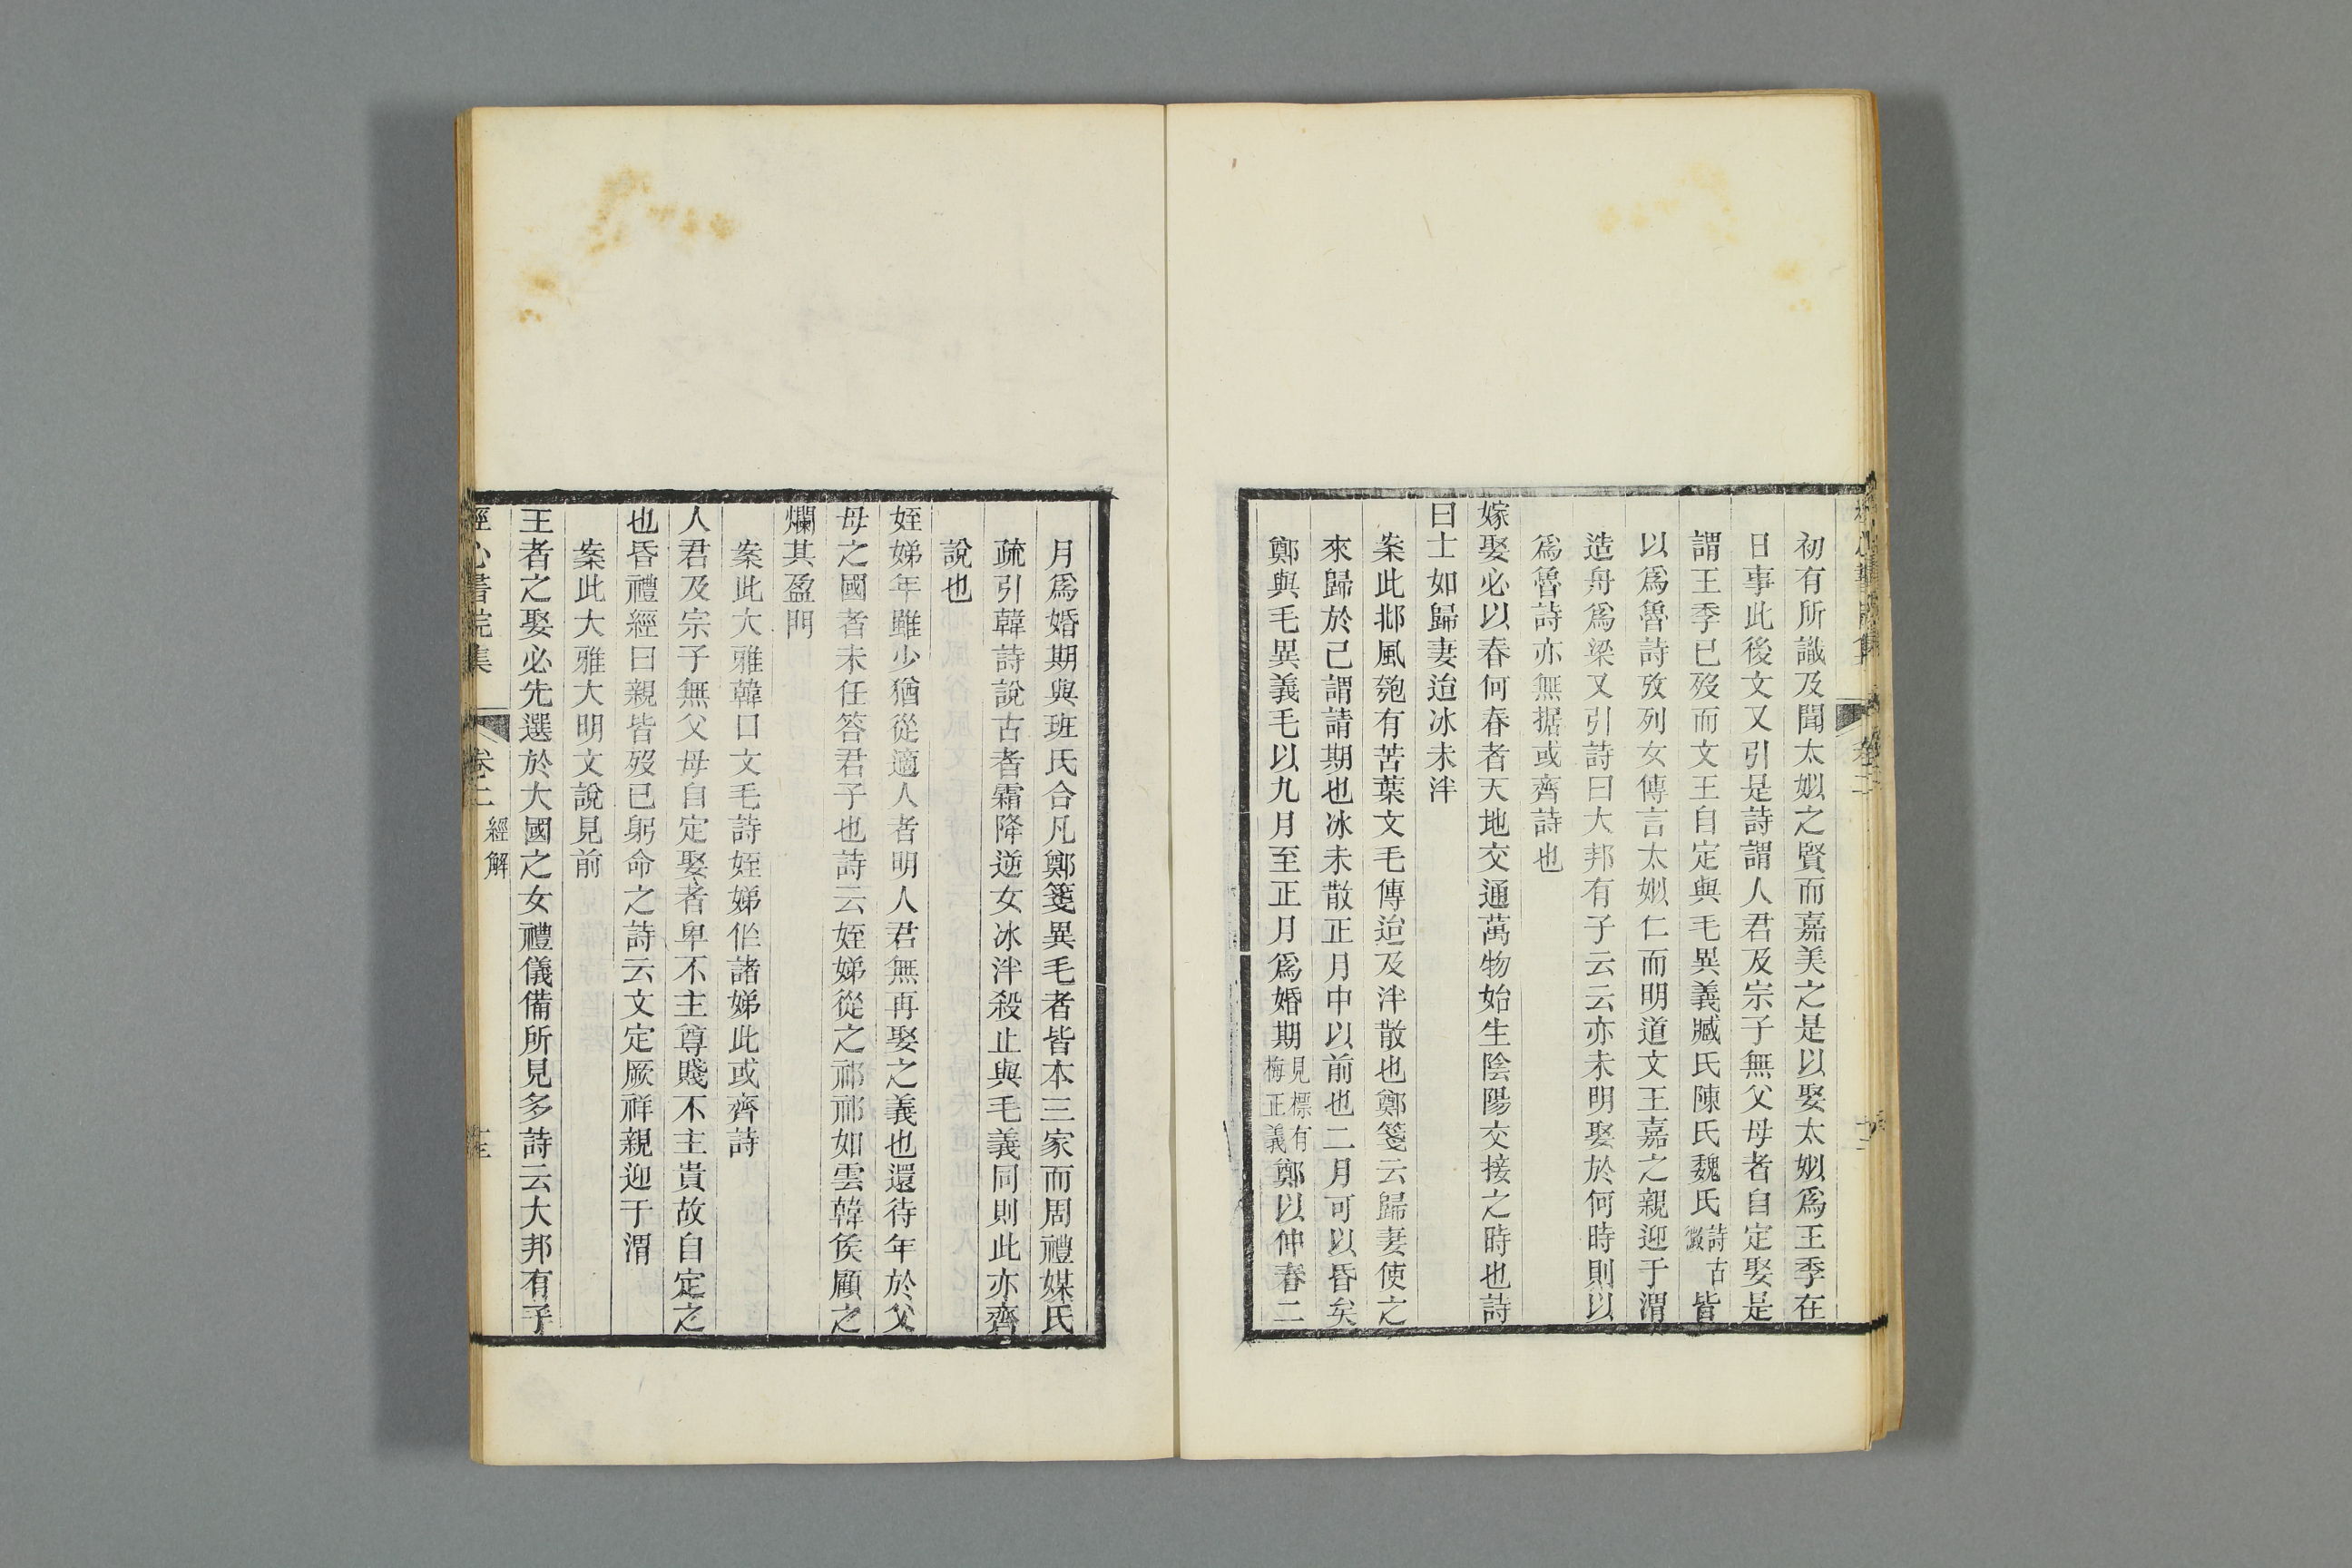 初有所識及聞太姒之賢而嘉美之是以娶太姒爲王季在
日事此後文又引是詩謂人君及宗子無父母者自定娶是
謂王季已歿而文王自定與毛異義臧氏陳氏魏氏詩古微皆
以爲魯詩攷列女傳言太姒仁而明道文王嘉之親迎于渭
造舟爲梁又引詩曰大邦有子云云亦未明娶於何時則以
爲魯詩亦無据或齊詩也
嫁娶必以春何春者天地交通萬物始生陰陽交接之時也詩
曰士如歸妻迨冰未泮
案此邶風匏有苦葉文毛傳迨及泮散也鄭箋云歸妻使之
來歸於己謂請期也冰未散正月中以前也二月可以昏矣
鄭與毛異義毛以九月至正月爲婚期見摽有梅正義鄭以仲春二
月爲婚期與班氏合凡鄭箋異毛者皆本三家而周禮媒氏
疏引韓詩說古者霜降逆女冰泮殺止與毛義同則此亦齊
說也
姪娣年雖少猶從適人者明人君無再娶之義也還待年於父
母之國者未任答君子也詩云姪娣從之祁祁如雲韓侯顧之
爛其盈門
案此大雅韓口文毛詩姪娣作諸娣此或齊詩
人君及宗子無父母自定娶者卑不主尊賤不主貴故自定之
也昏禮經曰親皆歿已躬命之詩云文定厥祥親迎于渭
案此大雅大明文說見前
王者之娶必先選於大國之女禮儀備所見多詩云大邦有子
經心書院集 卷二 經解 十三